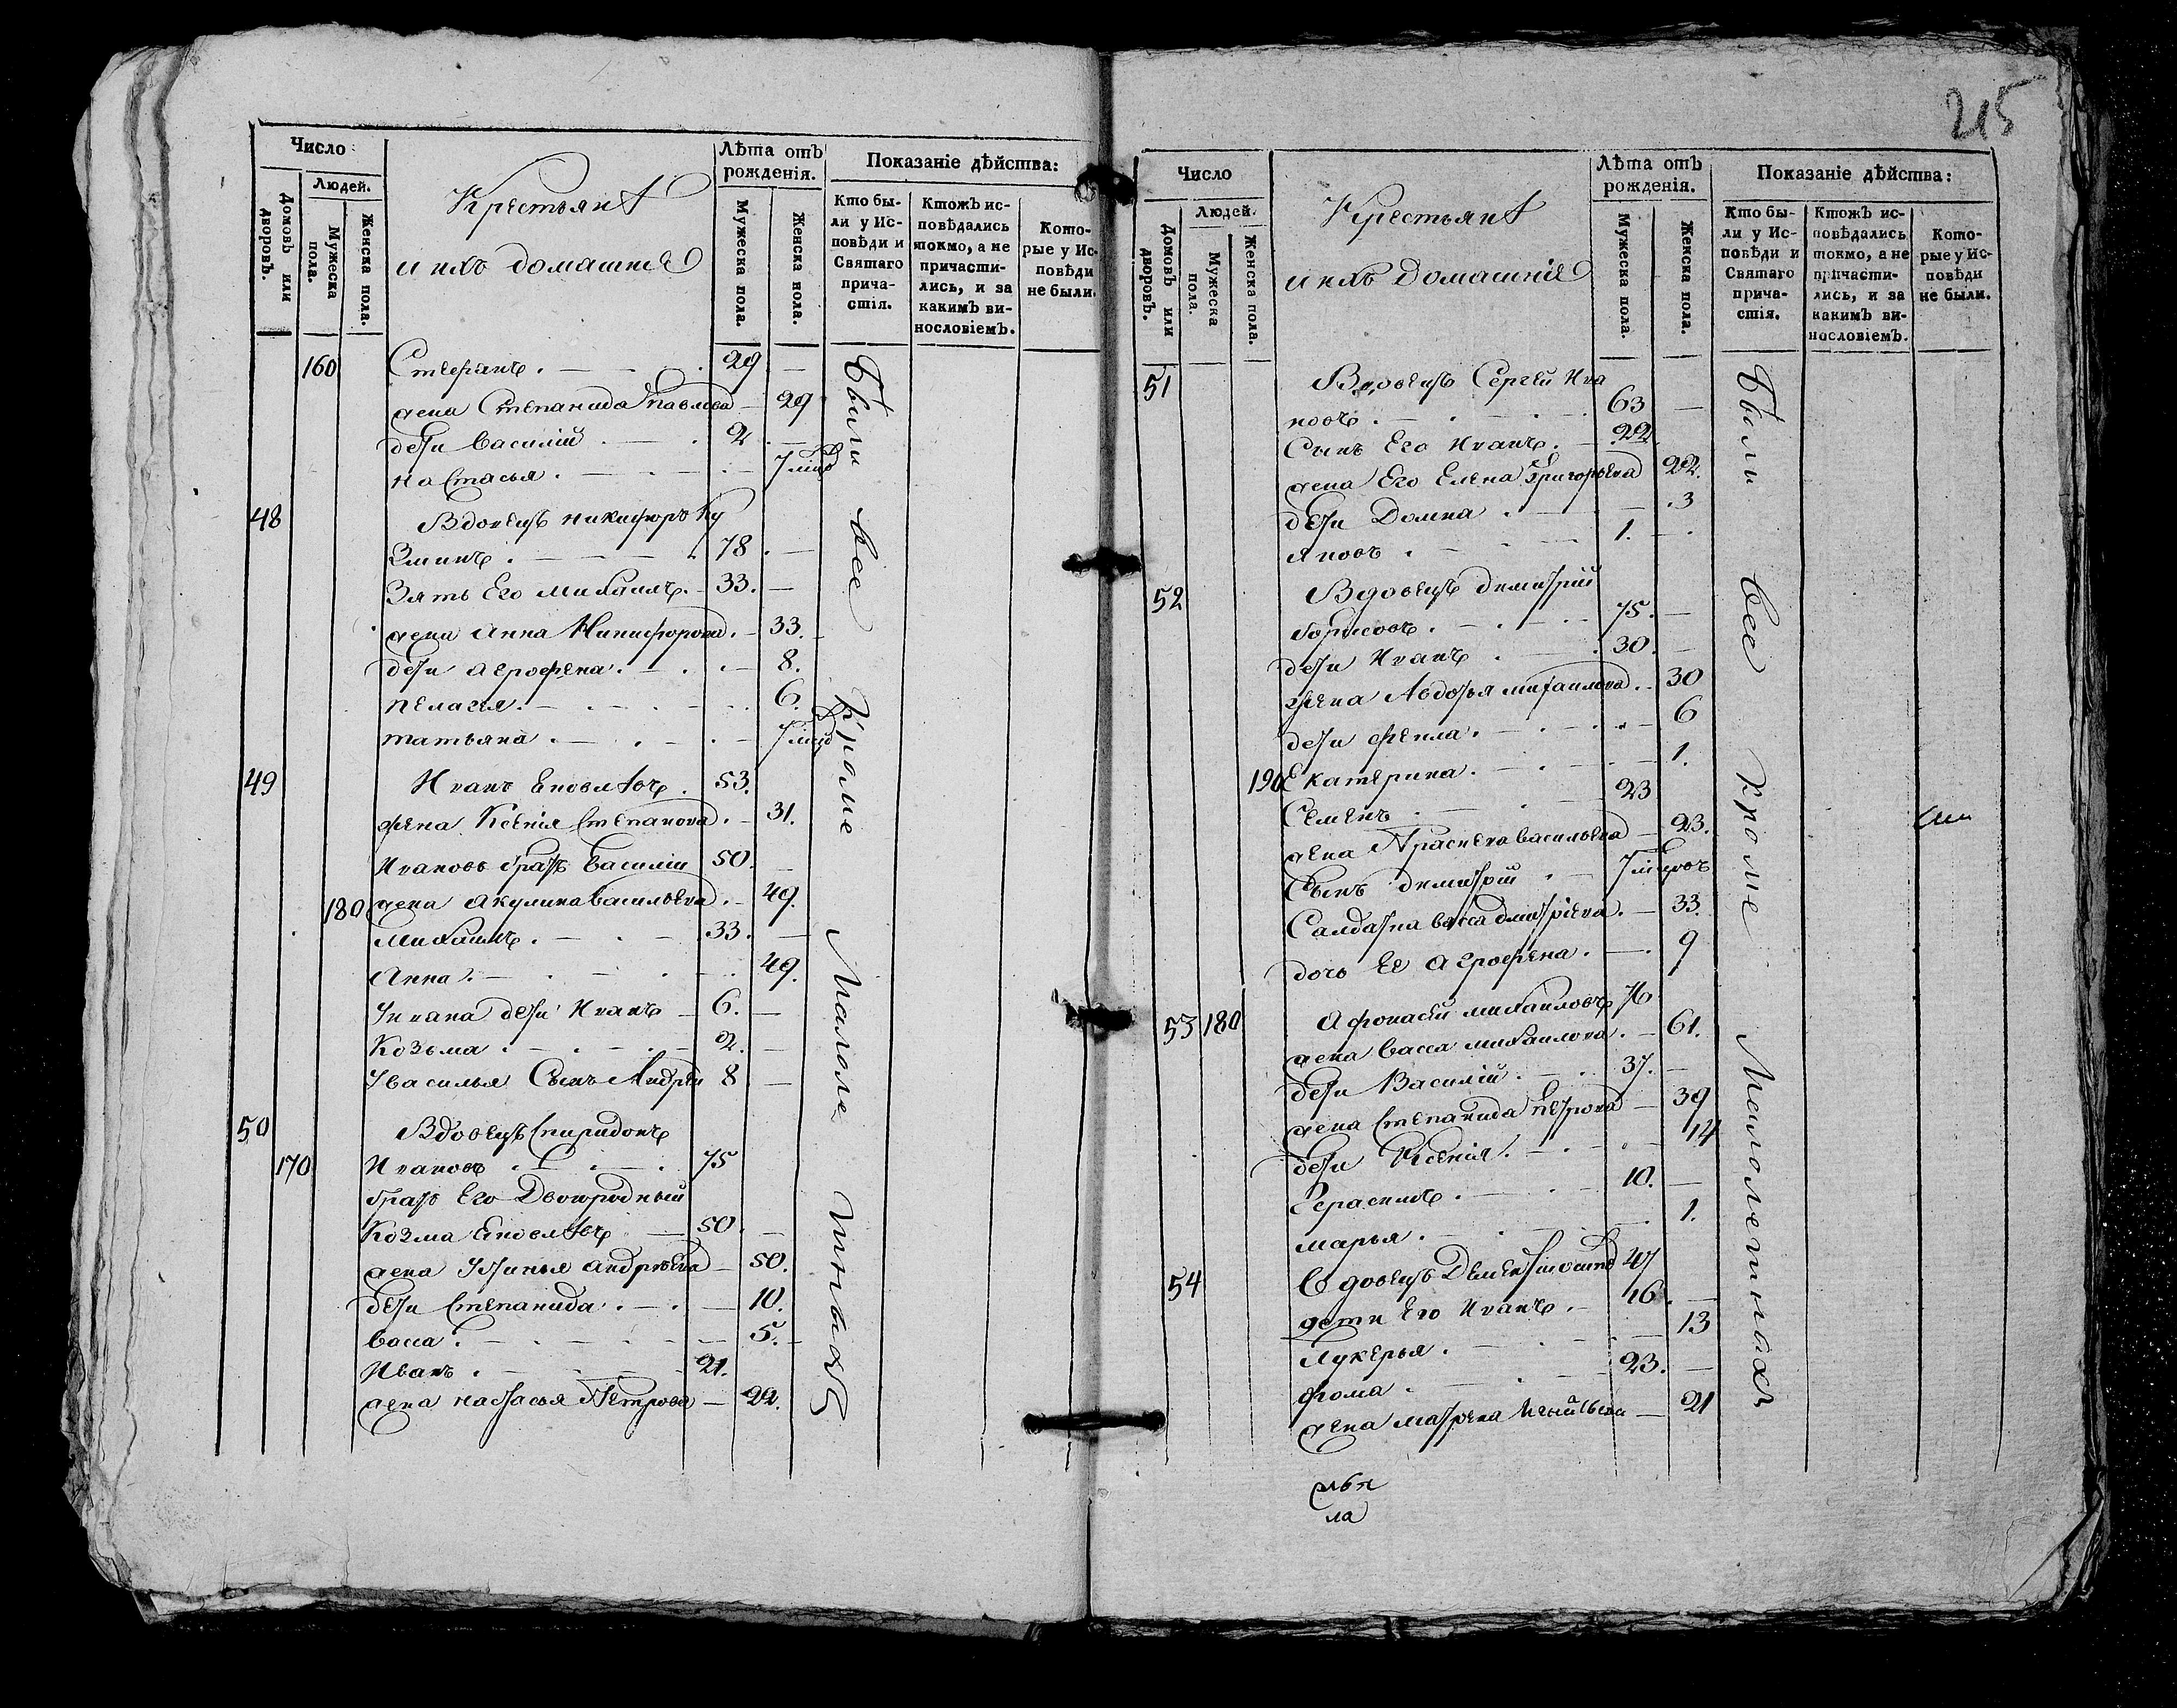 Число
Людей.
Домовъ или дворовъ.
Мужеска пола.
Женска пола.
Крестьянѣ
и ихъ домашнiе
Лѣта отъ рожденiя.
Мужеска пола.
Женска пола.
Показанiе дѣйства:
Кто бы-
ли у Ис-
повѣди и
Святаго
прича-
стiя.
Ктожъ ис-
повѣдались
токмо, а не
причасти-
лись, и за
какимъ ви-
нословiемъ.
Кото-
рые у Ис-
повѣди
не были.
160 Стефанъ 29
жена Степанида Павлова 29
дети Василiй 2
Настасья 7
48 Вдовецъ Никифоръ Ку
зминъ 78
Зять Его Михаилъ 33.
жена Анна Никифорова 33.
дети Агрофена 8.
Пелагея 6.
татьяна 7
49 Иванъ 53.
жена Ксенiя Степанова 31.
Ивановъ братъ Василiи 50.
180 жена Акулина Васильева 49.
Михаилъ 33.
Анна 49.
У Ивана дети Иванъ 6.
Козьма 2.
У Василья Сынъ Андрей 8
50 Вдовецъ Спиридонъ
170 Ивановъ 75
братъ Его Двоюродный
Козма 50.
жена Устинья Андрѣева 50.
дети Степанида 10.
Васса 5.
Иванъ 21.
жена настасья Петрова 22.
были все кроме Малолетныхъ
215
Число
Людей.
Домовъ или дворовъ.
Мужеска пола.
Женска пола.
Крестьянѣ
и ихъ Домашнiе
Лѣта отъ рожденiя.
Мужеска пола.
Женска пола.
Показанiе дѣйства:
Кто бы-
ли у Ис-
повѣди и
Святаго
прича-
стiя.
Ктожъ ис-
повѣдались
токмо, а не
причасти-
лись, и за
какимъ ви-
нословiемъ.
Кото-
рые у Ис-
повѣди
не были.
51 Вдовецъ Сергей Ива
новъ 63
Сынъ Его Иванъ 22.
жена Его Елена Григорьева 22.
дети Домна 3
Яковъ 1.
52 Вдовецъ димитрiй
борисовъ 75.
дети Иванъ 30.
жена Авдотья михаилова 30
дети фекла 6
190 Екатерина 1.
Семенъ 23
жена Прасковья Васильева 23.
Сынъ димитрiй 7
Салдатка Васса дмитрiева 33.
дочь Ее Агрофена 9
53 180 Афонасiй михаиловъ 76
жена Васса михаилова 61.
дети Василiй 37.
жена Степанида Петрова 39
дети Ксенiя 14
Герасимъ 10.
марья 1.
54 Вдовецъ 47
дети Его Иванъ 16.
Лукерья 13
фома 23.
жена матрена 21
были все кроме Малолетныхъ